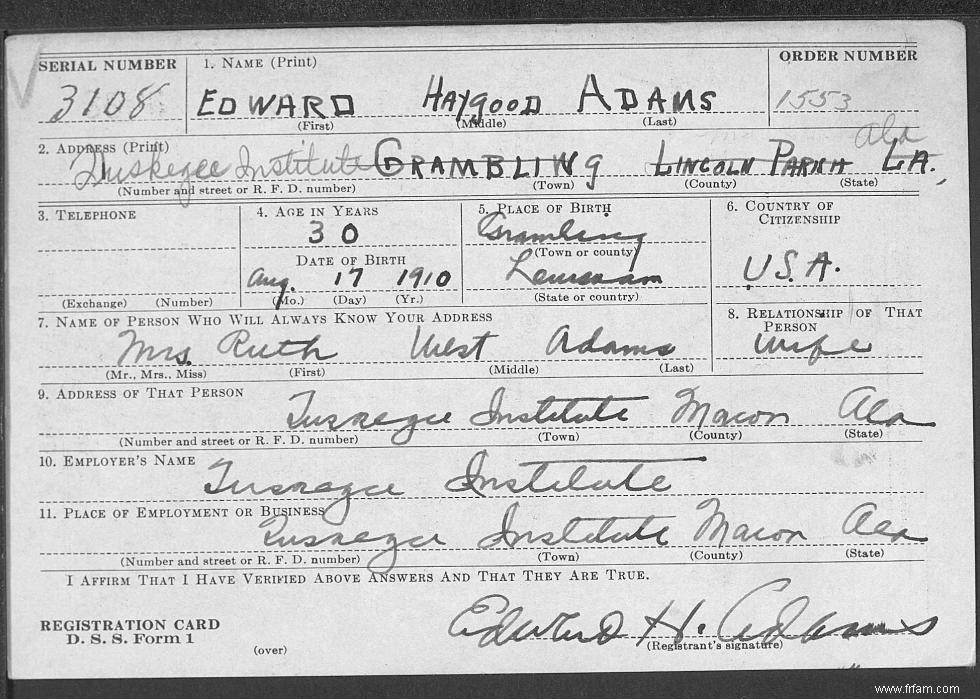 SERIAL NUMBER 1. NAME (Print) ORDER NUMBER
3108 EDWARD HAYGOOD ADAMS 1553
(First) (Middle) (Last)
2. ADDRESS (Print) Ala
Tuskegee Institute GRAMBLING LINCOLN PARISH LA.
(Number and street or R. F. D. number) (Town) (County) (State)
3. TELEPHONE 4. AGE IN YEARS 5. PLACE OF BIRTH 6. COUNTRY OF CITIZENSHIP
30 Grambling
DATE OF BIRTH (Town or county)
Aug. 17 1910 Louisiana U.S.A.
(Exchange) (Number) (Mo.) (Day) (Yr.) (State or country)
7. NAME OF PERSON WHO WILL ALWAYS KNOW YOUR ADDRESS 8. RELATIONSHIP OF THAT PERSON
Mrs. Ruth West Adams wife
(Mr., Mrs., Miss) (First) (Middle) (Last)
9. ADDRESS OF THAT PERSON
Tuskegee Institute Macon Ala
(Number and street or R. F. D. number) (Town) (County) (State)
10. EMPLOYER'S NAME
Tuskegee Institute
11. PLACE OF EMPLOYMENT OR BUSINESS
Tuskegee Institute Macon Ala
(Number and street or R. F. D. number) (Town) (County) (State)
I AFFIRM THAT I HAVE VERIFIED ABOVE ANSWERS AND THAT THEY ARE TRUE.
REGISTRATION CARD Edward H. Adams
D. S. S. Form 1 (over) (Registrant's signature)
www.frfam.com